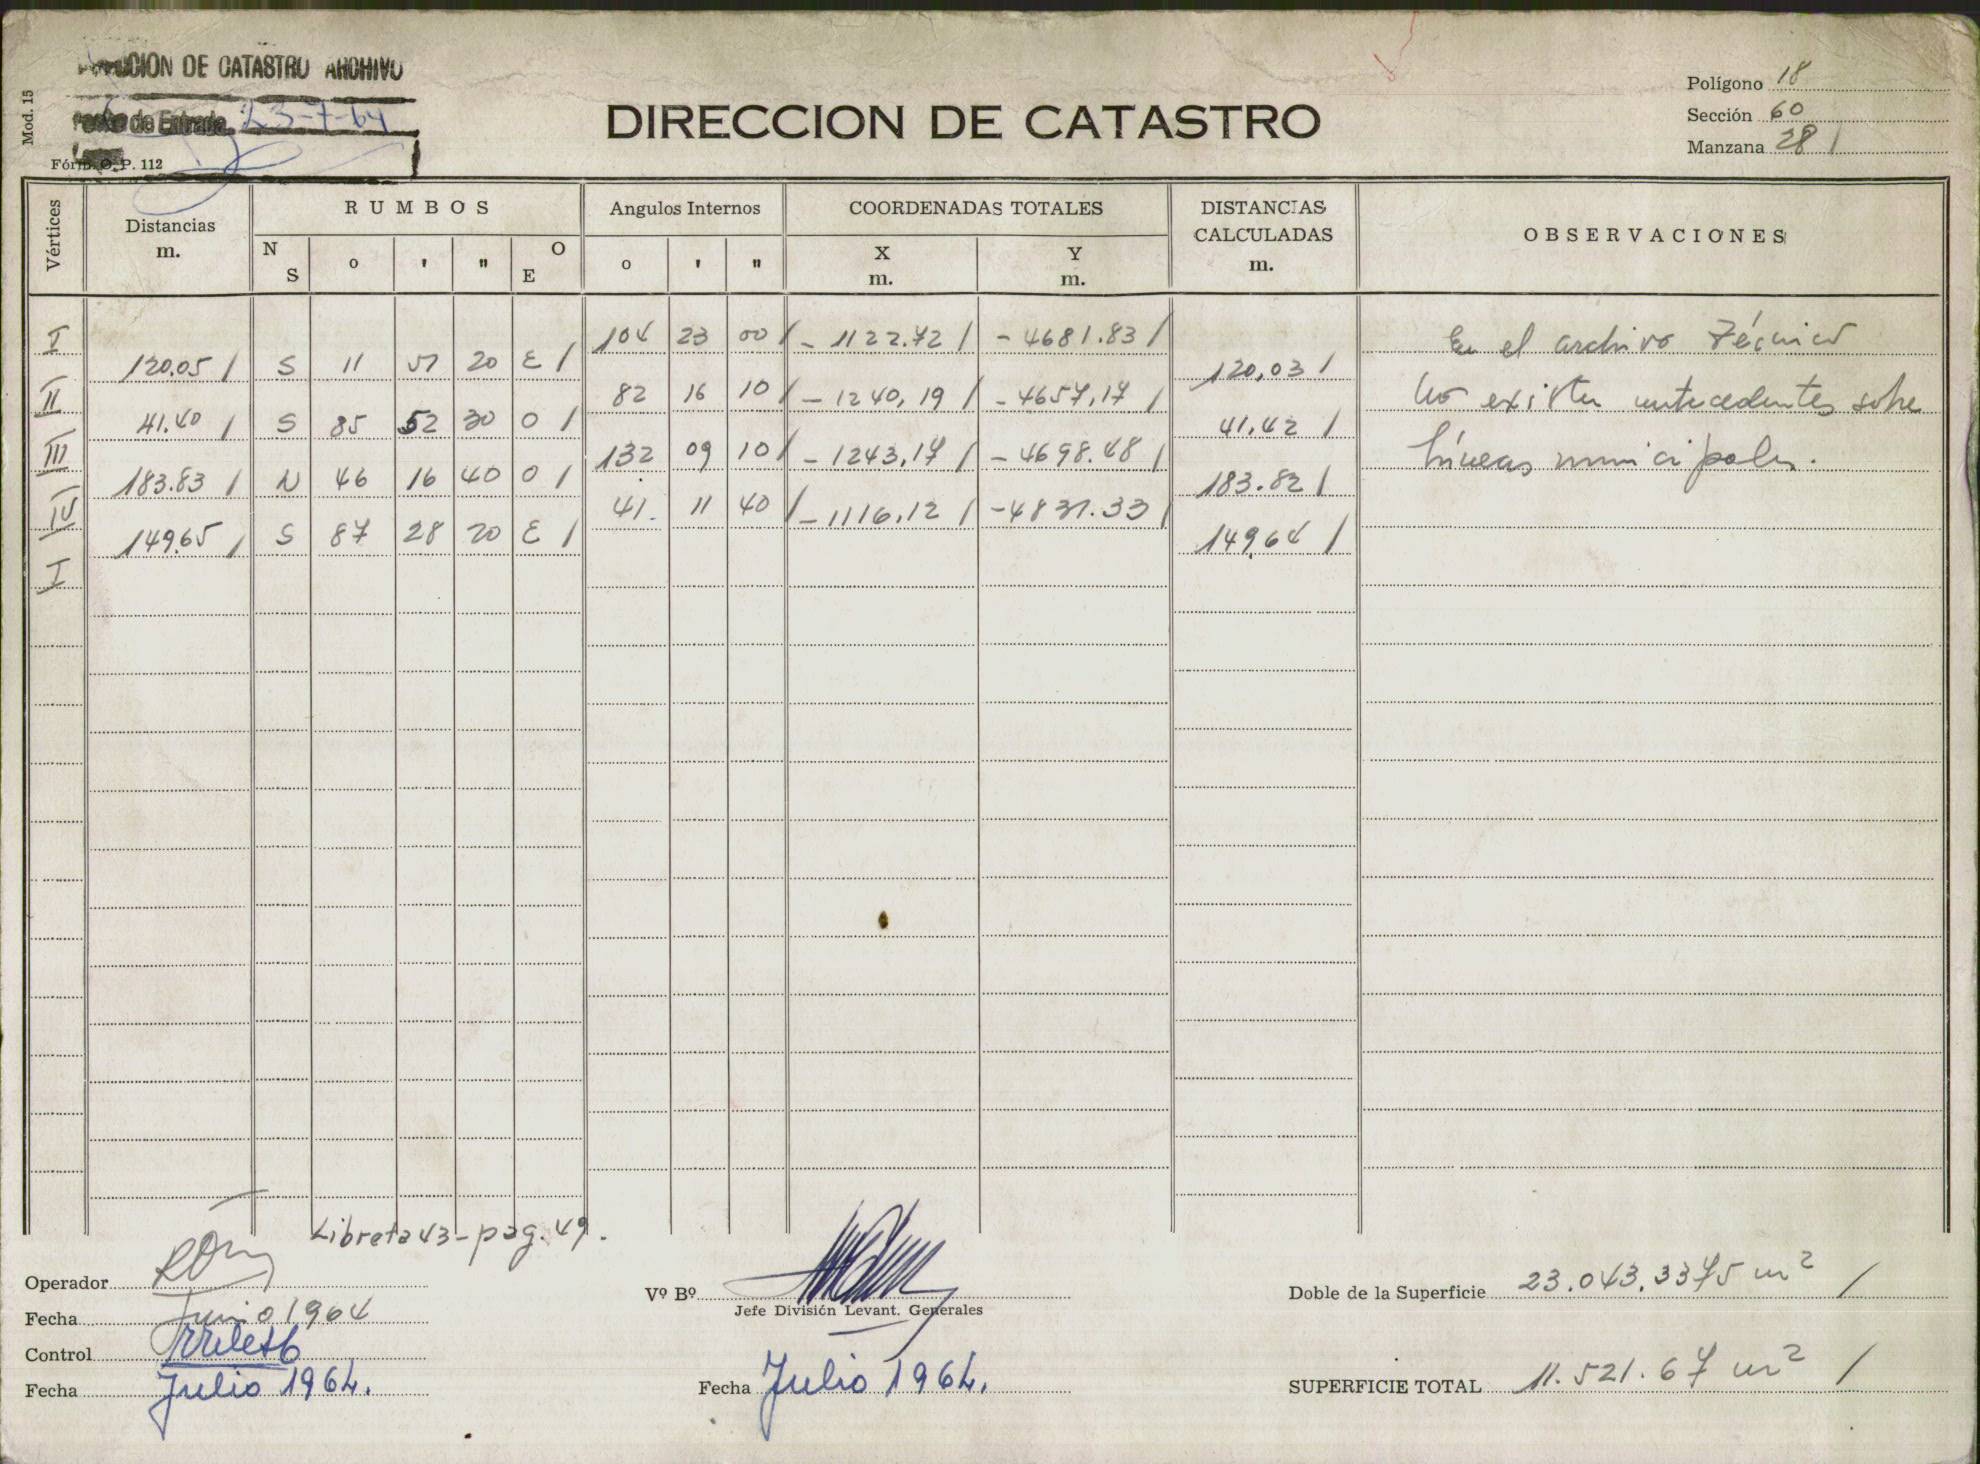 DIRECCION DE CATASTRO ARCHIVO
Fecha de Entrada 23-7-64
Mod. 15
Fórm. O. P. 112
DIRECCION DE CATASTRO
Polígono 18
Sección 60
Manzana 28 /
Vértices Distancias m. RUMBOS Angulos Internos COORDENADAS TOTALES DISTANCIAS CALCULADAS m. OBSERVACIONES
N S o ' " O E o ' " X m. Y m.
I 104 23 00 / - 1122.72 / - 4681.83 / En el archivo Técnico
120.05 / S 11 51 20 E / 120,03 /
II 82 16 10 / - 1240,19 / - 4657,17 / no existen antecedentes sobre
41.40 / S 85 52 30 O / 41,42 /
III 132 09 10 / - 1243,17 / - 4698.48 / líneas municipales.
183.83 / N 46 16 40 O / 183.82 /
IV 41. 11 40 / - 1116,12 / -4831.33 /
149.65 / S 87 28 20 E / 149.64 /
I
Libreta 43 - pag. 49.
Operador
Fecha Junio 1964
Control
Fecha Julio 1964.
Vº Bº
Jefe División Levant. Generales
Fecha Julio 1964.
Doble de la Superficie 23.043.3375 m² /
SUPERFICIE TOTAL 11.521.67 m² /